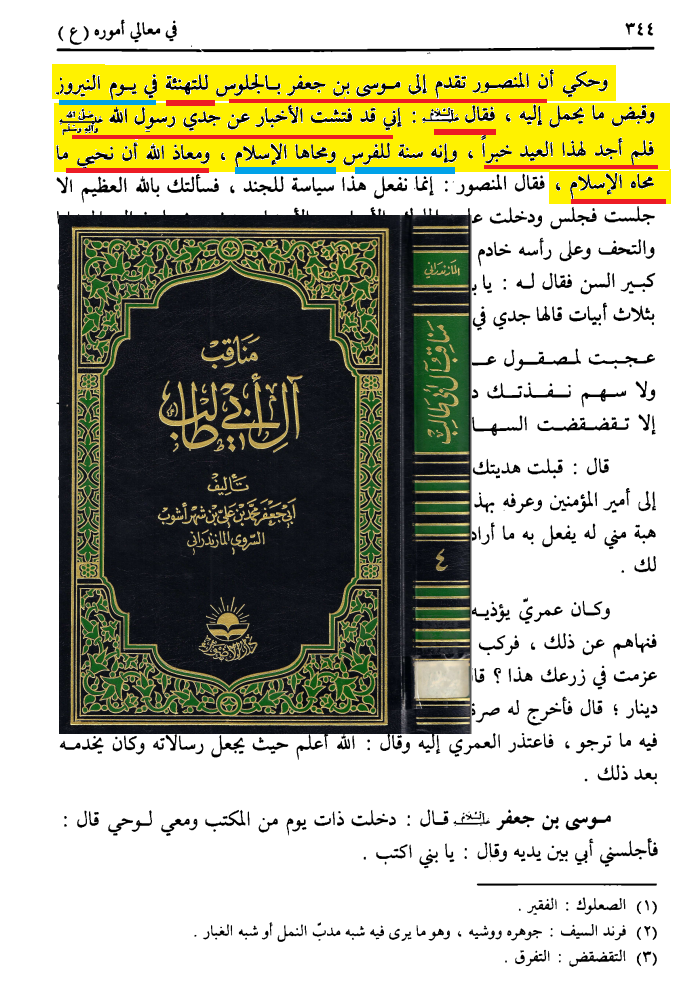 ٣٤٤
في معالي أموره (ع)
وحكي أن المنصور تقدم إلى موسى بن جعفر بالجلوس للتهنئة في يوم النيروز
وقبض ما يحمل إليه ، فقال عليه السلام : إني قد فتشت الأخبار عن جدي رسول الله صلى الله عليه وآله وسلم
فلم أجد لهذا العيد خبراً ، وإنه سنة للفرس ومحاها الإسلام ، ومعاذ الله أن نحيي ما
محاه الإسلام ، فقال المنصور : إنما نفعل هذا سياسة للجند ، فسألتك بالله العظيم الا
جلست فجلس ودخلت
والتحف وعلى رأسه خادم
كبير السن فقال له : يا
بثلاث أبيات قالها جدي في
عجبت لمصقول
ولا سهم نفذتك
إلا تقضقضت
قال : قبلت هديتك
إلى أمير المؤمنين وعرفه
هبة مني له يفعل به ما أراد
لك .
وكان عمريّ يؤذيه
فنهاهم عن ذلك ، فركب
عزمت في زرعك هذا ؟
دينار ؛ قال فأخرج له
فيه ما ترجو ، فاعتذر العمري إليه وقال : الله أعلم حيث يجعل رسالاته وكان يخدمه
بعد ذلك .
موسى بن جعفر عليه السلام قال : دخلت ذات يوم من المكتب ومعي لوحي قال :
فأجلسني أبي بين يديه وقال : يا بني اكتب .
(١) الصعلوك : الفقير .
(٢) فرند السيف : جوهره ووشيه ، وهو ما يرى فيه شبه مدبّ النمل أو شبه الغبار .
(٣) التقضقض : التفرق .
مناقب
آل أبي طالب
تأليف
أبي جعفر محمد بن علي بن شهر آشوب
السروي المازندراني
المازندراني
مناقب آل أبي طالب
٤